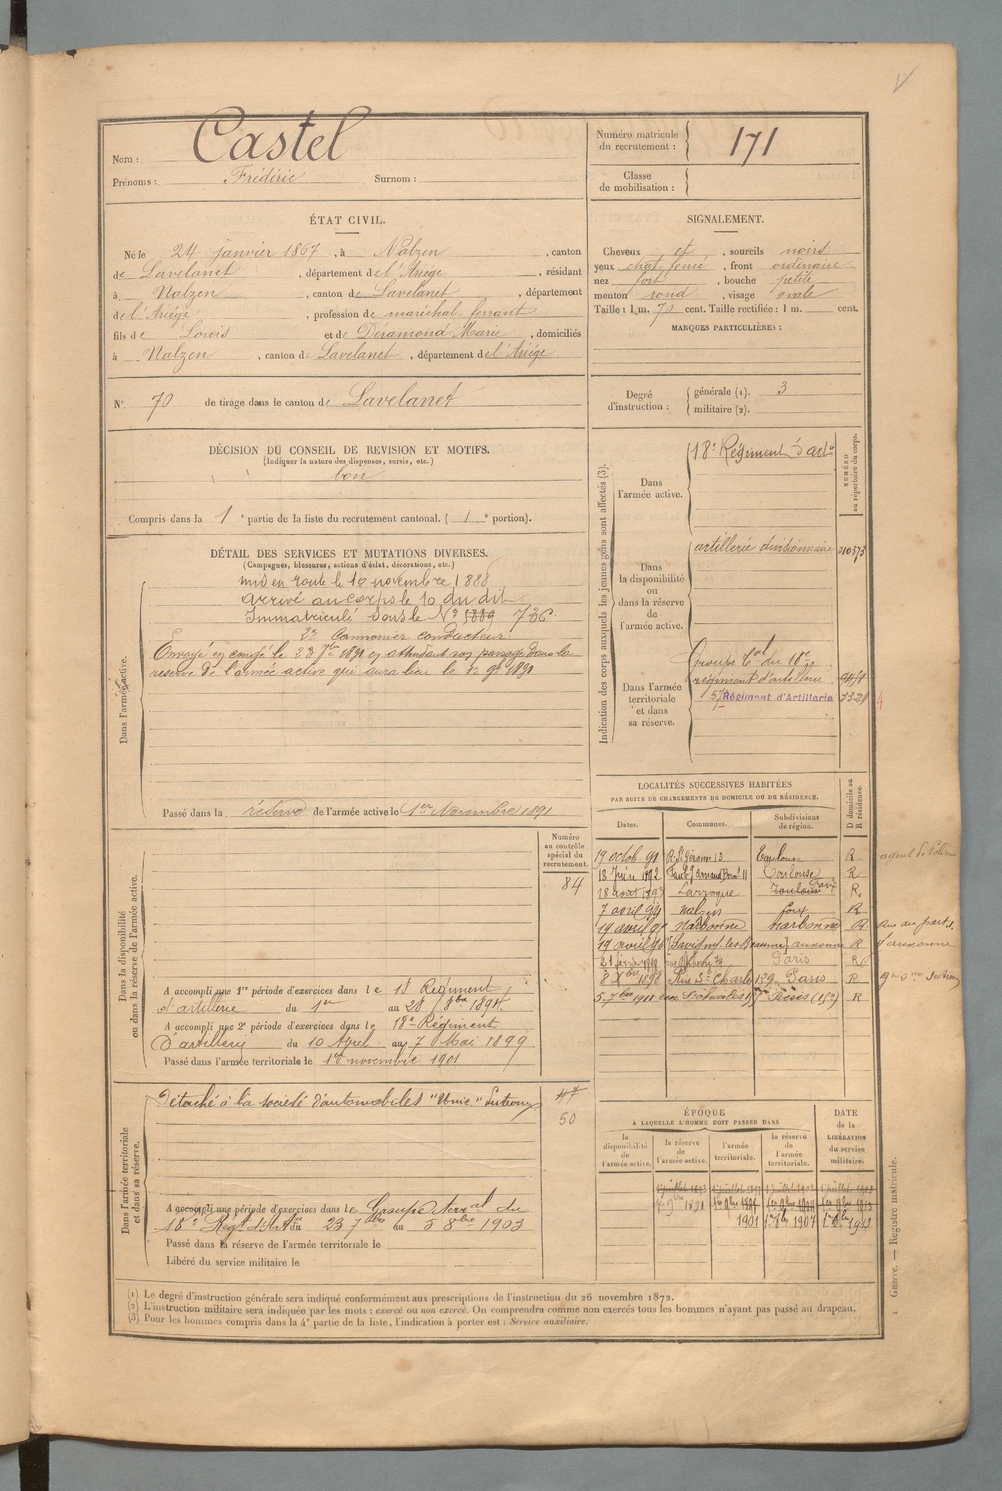 Nom : Castel
Prénoms : Frédéric Surnom :
Numéro matricule du recrutement : 171
Classe de mobilisation :
ÉTAT CIVIL.
Né le 24 janvier 1867, à Nalzen, canton
de Lavelanet, département de l'Ariège, résidant
à Nalzen, canton de Lavelanet, département
de l'Ariège, profession de maréchal ferrant
fils de Louis et de Déramond Marie, domiciliés
à Nalzen, canton de Lavelanet, département de l'Ariège.
SIGNALEMENT.
Cheveux et, sourcils noirs
yeux chat. foncé, front ordinaire
nez fort, bouche petite
menton rond, visage ovale
Taille : 1 m. 70 cent. Taille rectifiée : 1 m. cent.
MARQUES PARTICULIÈRES :
N° 70 de tirage dans le canton de Lavelanet
Degré d'instruction : générale (1). 3
militaire (2).
DÉCISION DU CONSEIL DE REVISION ET MOTIFS.
(Indiquer la nature des dispenses, sursis, etc.)
bon
Compris dans la 1e partie de la liste du recrutement cantonal. ( 1e portion).
DÉTAIL DES SERVICES ET MUTATIONS DIVERSES.
(Campagnes, blessures, actions d'éclat, décorations, etc.)
Dans l'armée active.
mis en route le 10 novembre 1888
arrivé au corps le 10 du dit
Immatriculé sous le N° 1889 736.
2e Canonnier conducteur.
Envoyé en congé le 23 7bre 1891 en attendant son passage dans la
réserve de l'armée active qui aura lieu le 1er 9bre 1891
Passé dans la réserve de l'armée active le 1er Novembre 1891
Indication des corps auxquels les jeunes gens sont affectés (3).
NUMÉRO au répertoire du corps.
Dans l'armée active. 18e Régiment d'artie
Dans la disponibilité ou dans la réserve de l'armée active. artillerie divisionnaire 010373
Dans l'armée territoriale et dans sa réserve. Groupe tal du 18e
régiment d'artillerie
57 Régiment d'Artillerie
LOCALITÉS SUCCESSIVES HABITÉES
PAR SUITE DE CHANGEMENTS DE DOMICILE OU DE RÉSIDENCE.
Dates. Communes. Subdivisions de région. D domicile ou R résidence.
19 octob 91 Toulouse R
18 Juin 1892 Toulouse R
18 août 1893 Larroque Toulouse R.
7 avril 94 Nalzen foix R
19 avril 95 Narbonne Narbonne R
19 avril 96 Savigny les Beaune auxonne R
Paris R
8 Xbre 1898 Rue St Charles 129 Paris R
5.7bre 1901 Paris (15e) R
Dans la disponibilité ou dans la réserve de l'armée active.
Numéro au contrôle spécial du recrutement.
84
A accompli une 1re période d'exercices dans le 18 Régiment
d'artillerie du 1er au 28 8bre 1894.
A accompli une 2e période d'exercices dans le 18e Régiment
d'artillery du 10 Avril au 7 Mai 1899
Passé dans l'armée territoriale le 1er novembre 1901
Dans l'armée territoriale et dans sa réserve.
Détaché à la société d'automobiles "Unic"
50
A accompli une période d'exercices dans le Groupe Terral du
18e Régt d'Artie du 23 7bre au 5 8bre 1903
Passé dans la réserve de l'armée territoriale le
Libéré du service militaire le
ÉPOQUE
A LAQUELLE L'HOMME DOIT PASSER DANS
la disponibilité de l'armée active. la réserve de l'armée active. l'armée territoriale. la réserve de l'armée territoriale. DATE de la LIBÉRATION du service militaire.
1er 9bre 1891
1901
(1) Le degré d'instruction générale sera indiqué conformément aux prescriptions de l'instruction du 26 novembre 1872.
(2) L'instruction militaire sera indiquée par les mots : exercé ou non exercé. On comprendra comme non exercés tous les hommes n'ayant pas passé au drapeau.
(3) Pour les hommes compris dans la 4e partie de la liste, l'indication à porter est : Service auxiliaire.
Guerre. — Registre matricule.